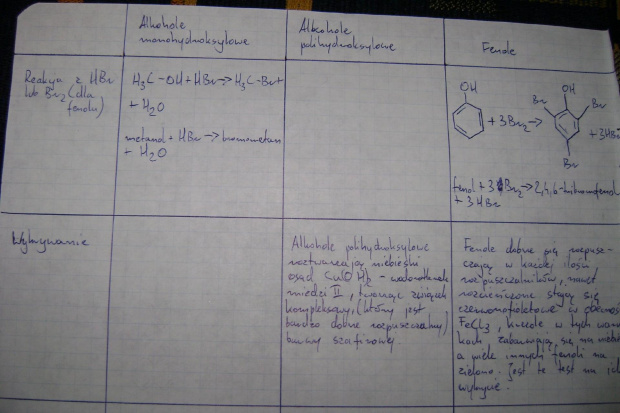 Alkohole
monohydroksylowe
Alkohole
polihydroksylowe
Fenole
Reakcja z HBr
lub Br2 (dla
fenolu)
H3C-OH+HBr→H3C-Br+
+ H2O
metanol + HBr → bromometan
+ H2O
OH
+ 3Br2 →
OH
Br
Br
Br
+ 3HBr
fenol + 3Br2 → 2,4,6-tribromofenol
+ 3HBr
Wykrywanie
Alkohole polihydroksylowe
roztwarzają niebieski
osad Cu(OH)2 - wodorotlenek
miedzi II, tworząc związek
kompleksowy, (który jest
bardzo dobrze rozpuszczalny)
barwy szafirowej.
Fenole dobrze się rozpusz-
czają w każdej ilości
rozpuszczalników, nawet
rozcieńczone stają się
czerwonofioletowe w obecności
FeCl3, krezole w tych warun
kach zabarwiają się na niebiesko
a wiele innych fenoli na
zielono. Jest to test na ich
wykrycie.